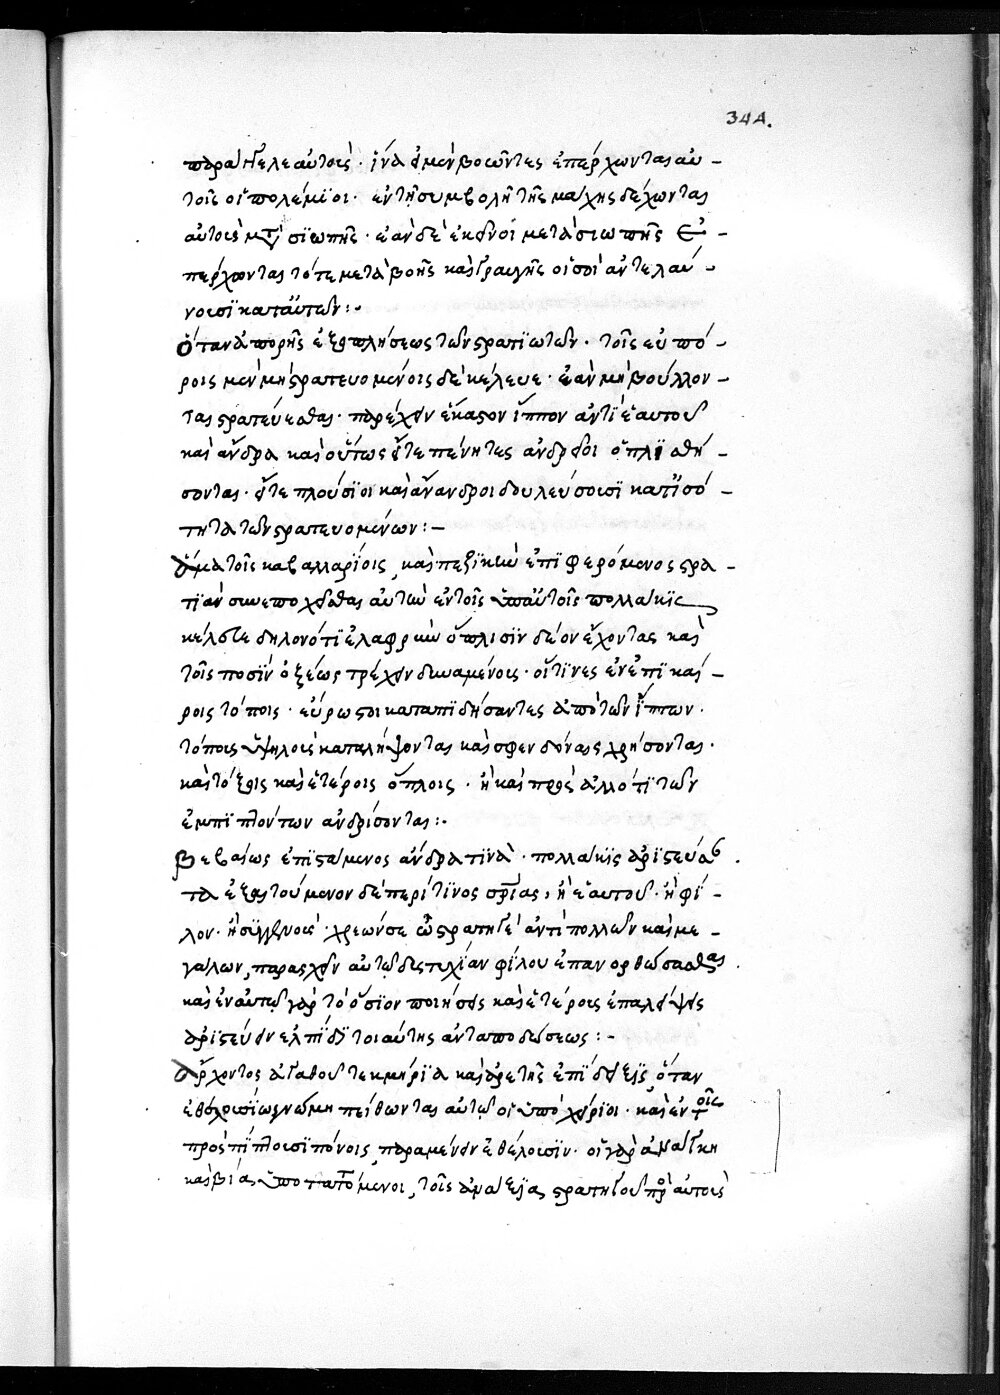 344.
παράγγελε αὐτοῖς· ἵνα εἰ μὲν βοῶντες ἐπέρχωνται αὐ-
τοῖς οἱ πολέμϊοι· ἐν τῇ συμβολῇ τῆς μάχης δέχωνται
αὐτοὺς μετὰ σϊωπῆς· ἐὰν δὲ ἐκεῖνοι μετὰ σιωπῆς ἐ-
πέρχωνται τότε μετὰ βοῆς καὶ κραυγῆς οἱ σοὶ ἀντελαύ-
νουσϊ κατ' αὐτῶν:-
ὅταν ἀπορῇς ἐξοπλήσεως τῶν στρατϊωτῶν· τοῖς εὐπό-
ροις μὲν μὴ στρατευομένοις δὲ κέλευε· ἐὰν μὴ βούλλον-
ται στρατεύεσθαι· παρέχειν ἕκαστον ἵππον ἀντὶ ἑαυτοῦ
καὶ ἄνδρα καὶ οὕτως οἵ τε πένητες ἀνδρεῖοι ὁπλϊσθή-
σονται· οἵ τε πλούσϊοι καὶ ἄνανδροι δουλεύσουσϊ κατ' ἰσό-
τητα τῶν στρατευομένων:-
ἅμα τοῖς καβαλλαρίοις, καὶ πεζϊκὴν ἐπϊφερόμενος στρα-
τϊὰν συνεποχεῖσθαι αὐτὴν ἐν τοῖς ὑπ' αὐτοῖς πολλάκϊς
κέλευε δηλονότϊ ἐλαφρὰν ὅπλισϊν δέον ἔχοντας καὶ
τοῖς ποσὶν ὀξέως τρέχειν δυναμένους· οἵτϊνες ἐν ἐπϊκαί-
ροις τόποις· εὔρωστοι καταπϊδήσαντες ἀπὸ τῶν ἵππων·
τόπους ὑψηλοὺς καταλήψονται καὶ σφενδόναις χρήσονται·
καὶ τόξοις καὶ ἑτέροις ὅπλοις· ἢ καὶ πρὸς ἄλλό τϊ τῶν
ἐμπϊπλόντων ἀνδρίσονται:-
Βεβαίως ἐπϊστάμενος ἄνδρα τϊνὰ· πολλάκϊς ἀρϊστεύσαν
τα ἐξαιτούμενον δὲ περί τϊνος σωτηρίας, ἢ ἑαυτοῦ· ἢ φί-
λου· ἢ συγγενοῦς· χρεών σε ὦ στρατηγὲ ἀντὶ πολλῶν καὶ με-
γάλων, παρασχεῖν αὐτῷ δυστυχίαν φίλου ἐπανορθώσασθαι
καὶ ἐν αὐτῷ γὰρ τὸ ὅσϊον ποιήσεις καὶ ἑτέρους ἐπαλείψεις
ἀρϊστεύειν ἐλπίδϊ τοιαύτης ἀνταποδώσεως:-
ἄρχοντος ἀγαθοῦ τεκμήρϊα καὶ ἀρετῆς ἐπϊδείξεϊς, ὅταν
ἑκουσίω γνώμη πείθωνται αὐτῷ οἱ ὑποχείρϊοι· καὶ ἐν τοῖς
προσπίπτουσϊ πόνοις, παραμένειν ἐθέλουσϊν· οἱ γὰρ ἀνάγκη
καὶ βία ὑποταττόμενοι, τοῖς ἀμάξϊας στρατηγοῦ πρὸς αὐτοὺς